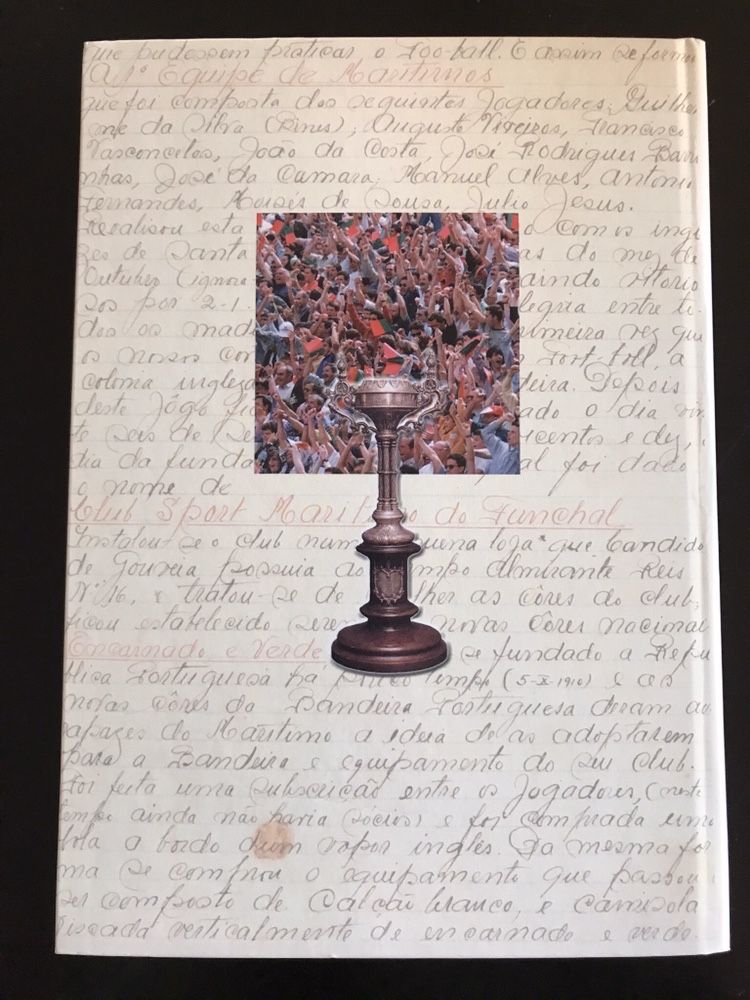 que pudessem praticar o Foo-ball. E assim se formou
A 1ª Equipe de Maritimos
que foi composta dos seguintes Jogadores; Guilher
me da Silva (Pines); Augusto Viveiros, Francisco
Vasconcelos, João da Costa, José Rodrigues Barri
nhas, José da Camara, Manuel Alves, Antonio
Fernandes, Moisés de Sousa, Julio Jesus.
Realisou esta o com os ingl
zes de Santa as do mez de
Outubro (ignora aindo vitorio
sos por 2-1. legria entre to
dos os mad rimeira vez que
os nossos con Foot-boll, a
colonia ingleza deira. Depois
deste Jôgo fi ado o dia vin
te seis de Se centos e dez,
dia da funda al foi dado
o nome de
Club Sport Marit o do Funchal
Instalou-se o club num uena loja que Candido
de Gouveia possuia ao mpo Almirante Reis
Nº 16, e tratou-se de lher as côres do club,
ficou estabelecido sere novas Côres nacionai
Encarnado e Verde se fundado a Repu
blica Portuguesa ha pouco tempo (5-X-1910) e as
novas côres da Bandeira Portuguesa deram aos
rapazes do Maritimo a ideia de as adoptarem
para a Bandeira e equipamento do seu club.
Foi feita uma subscrição entre os Jogadores, (neste
tempo ainda não havia socios) e foi comprada uma
bola a bordo dum vapor inglês. Da mesma for
ma se comprou o equipamento que passou
ser composto de Calção branco, e Camisola
riscada verticalmente de encarnado e verde.